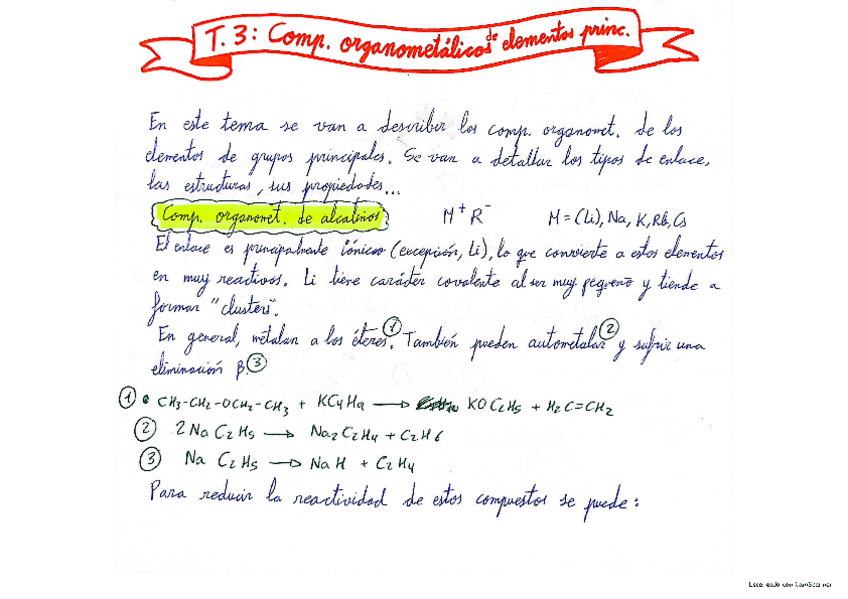 T.3: Comp. organometálicos de elementos princ.
En este tema se van a describir los comp. organomet. de los
elementos de grupos principales. Se van a detallar los tipos de enlace,
las estructuras, sus propiedades...
Comp. organomet. de alcalinos M⁺R⁻ M = (Li), Na, K, Rb, Cs
El enlace es principalmente iónico (excepción, Li), lo que convierte a estos elementos
en muy reactivos. Li tiene carácter covalente al ser muy pequeño y tiende a
formar "clusters".
En general, metalan a los éteres.① También pueden autometalar② y sufrir una
eliminación β.③
① • CH3-CH2-OCH2-CH3 + KC4H9 → KOC2H5 + H2C=CH2
② 2NaC2H5 → Na2C2H4 + C2H6
③ NaC2H5 → NaH + C2H4
Para reducir la reactividad de estos compuestos se puede:
Escaneado con CamScanner